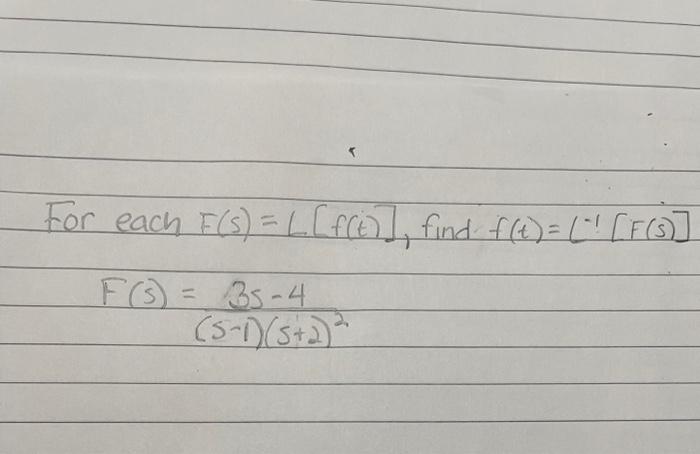 For each F(s) = L[f(t)], find f(t) = L⁻¹ [F(s)]
F(s) = 3s-4
(s-1)(s+2)²